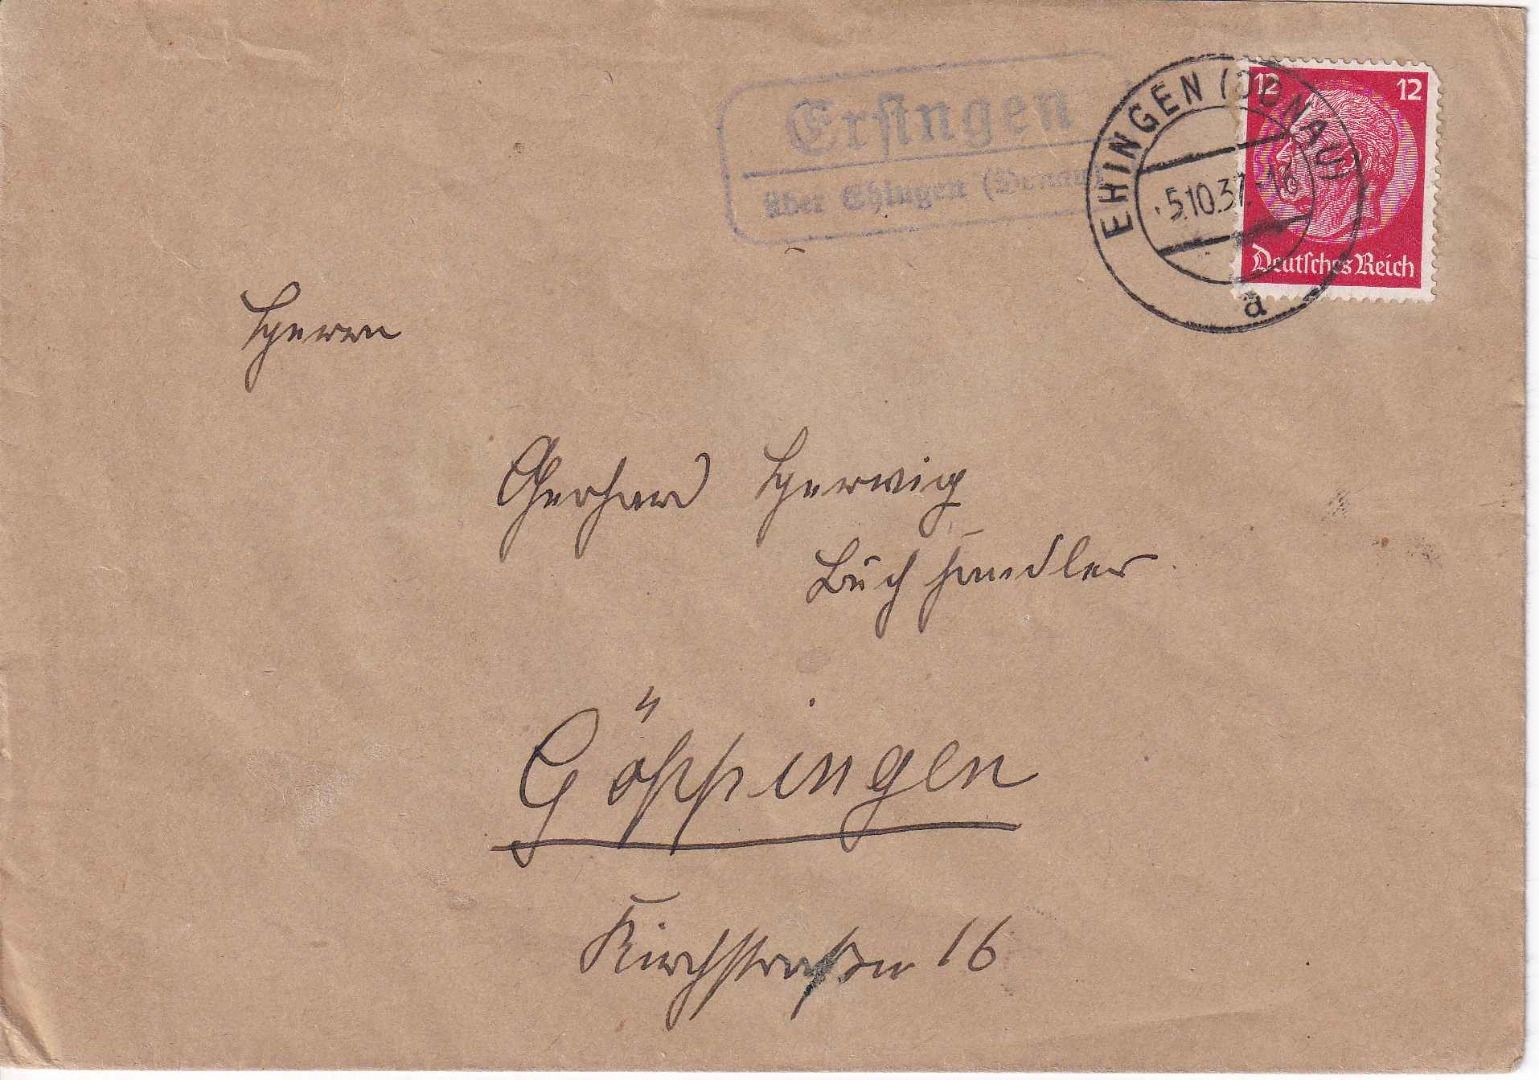 Ersingen
über Ehingen (Donau)
EHINGEN (DONAU)
5.10.37.-18
a
12 12
Deutsches Reich
Herrn
Gerhard Herwig
Buchhandler
Göppingen
Kirchstraße 16